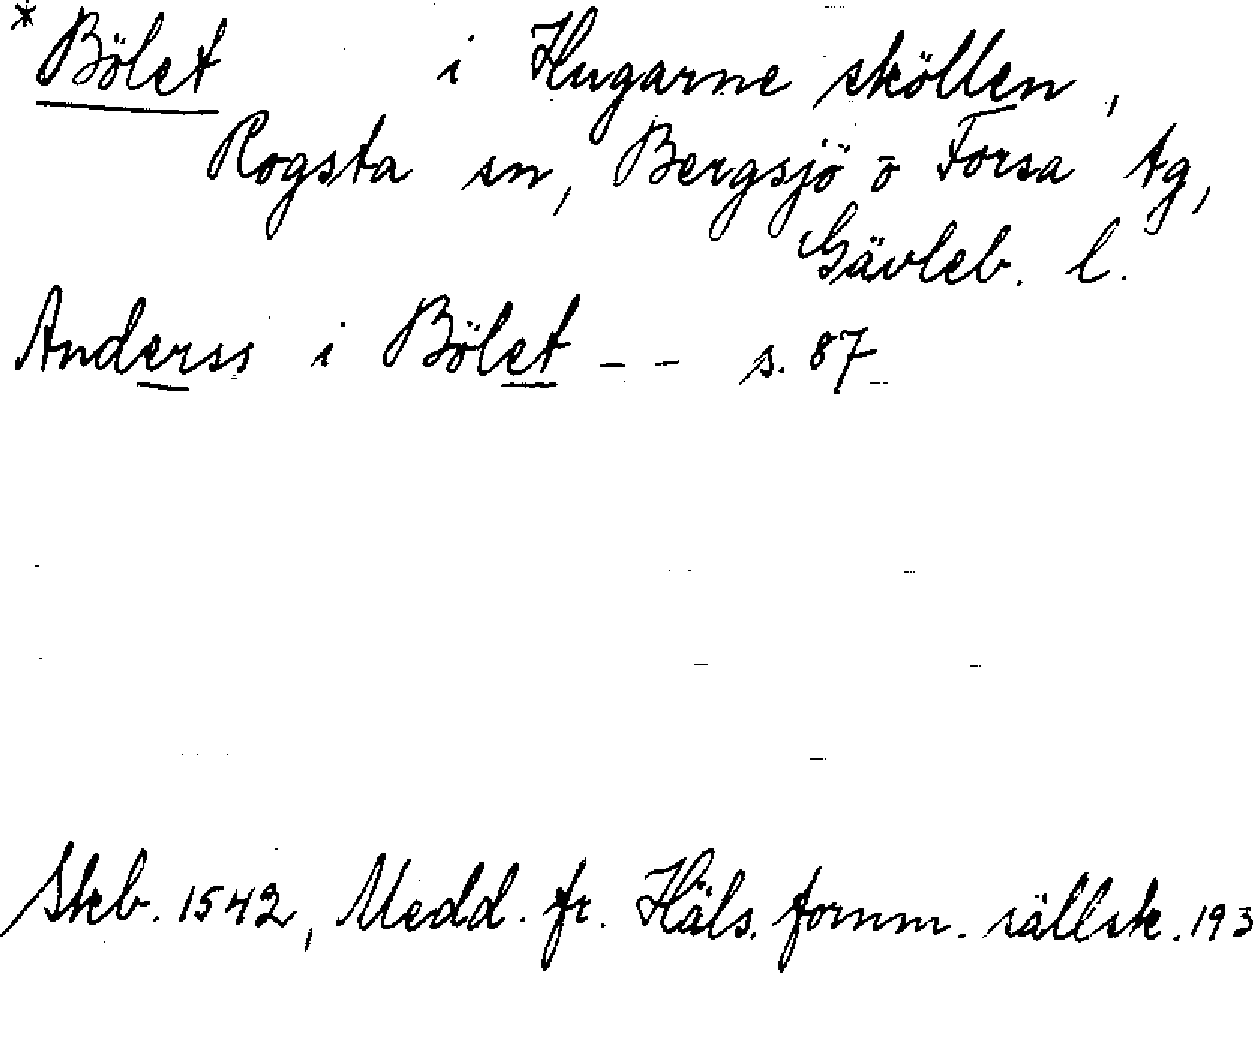 *Bölet i Hugarne sköllen,
Rogsta sn, Bergsjö o Forsa tg,
Gävleb. l.
Anderss i Bölet - - s. 87
Skb. 1542, Medd. fr. Häls. fornm. sällsk. 193